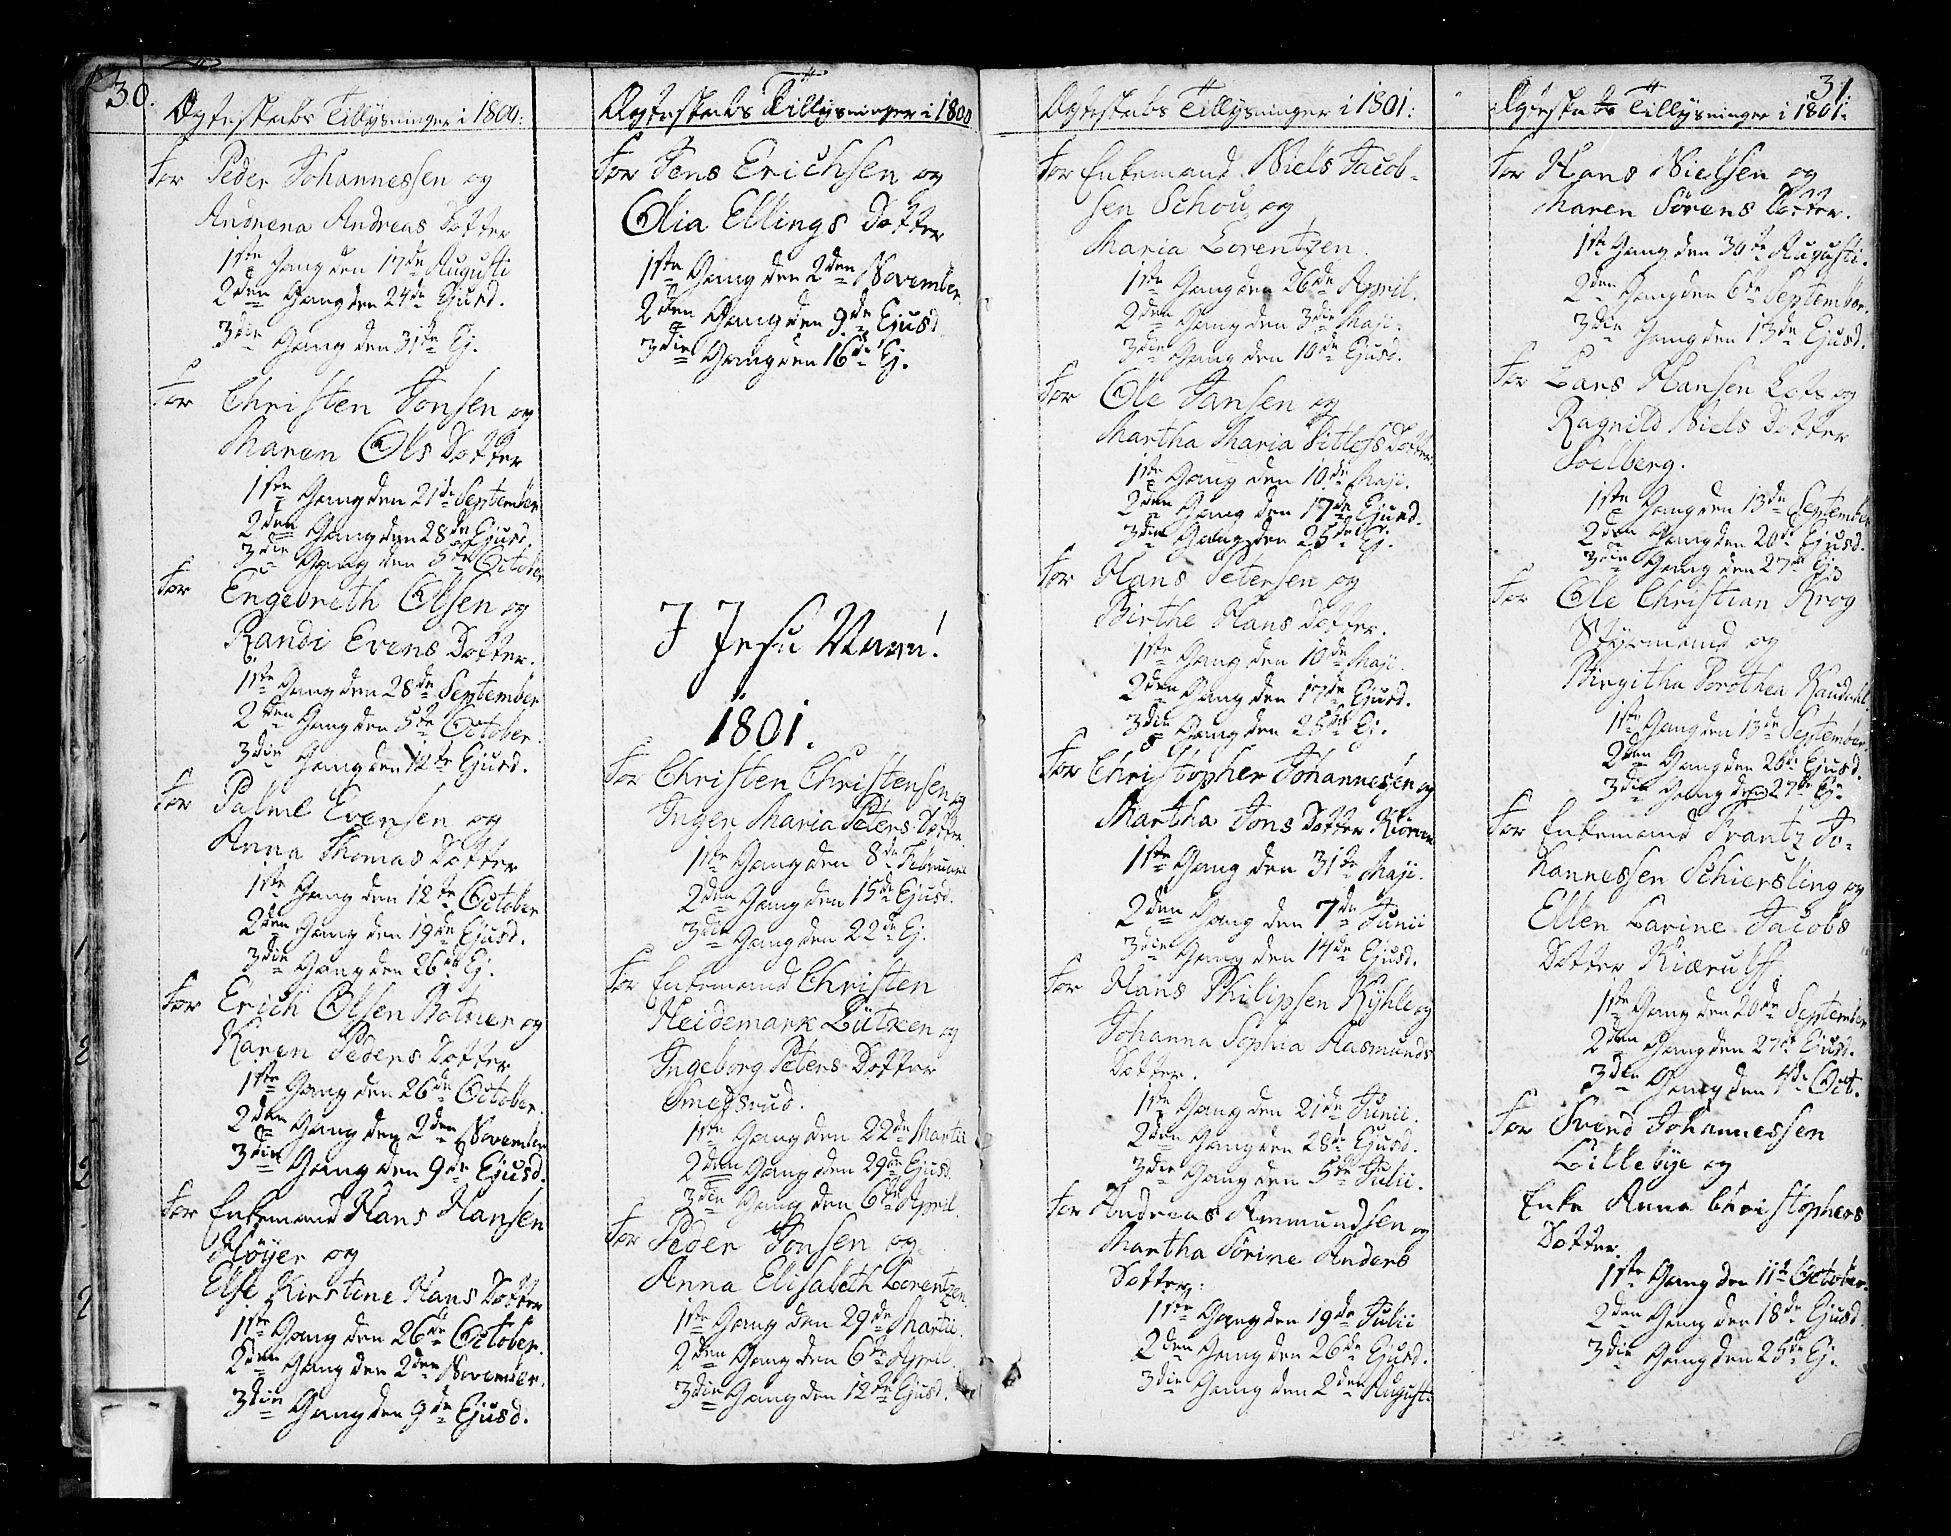 30.
Ægteskabs Tillysninger i 1800:
for Peder Johannessen og
Andrena Andreas Dotter
1ste Gang den 17de Augusti
2den Gang den 24de Ejusd.
3die Gang den 31te Ej.
for Christen Jonsen og
Maren Ols Dotter
1ste Gang den 21de September
2den Gang den 28de Ejusd.
3die Gang den 5te October
for Engebreth Olsen og
Randi Evens Dotter.
1ste Gang den 28de September
2den Gang den 5te October.
3die Gang den 12te Ejusd.
for Palme Evensen og
Anna Thomas Dotter
1ste Gang den 12te October
2den Gang den 19de Ejusd.
3die Gang den 26de Ej.
for Erich Olsen Botner og
Karen Peders Dotter
1ste Gang den 26de October.
2den Gang den 2den November
3die Gang den 9de Ejusd.
for Enkemand Hans Hansen
Høyer og
Else Kirstine Hans Dotter
1ste Gang den 26de October.
2den Gang den 2den November.
3die Gang den 9de Ejusd.
Ægteskabs Tillysninger i 1800
for Jens Erichsen og
Olia Ellings Dotter
1ste Gang den 2den November.
2den Gang den 9de Ejusd
3die Gang den 16de Ej.
I Jesu Navn!
1801.
for Christen Christensen og
Inger Maria Peters Dotter.
1ste Gang den 8de Februarii
2den Gang den 15de Ejusd.
3die Gang den 22de Ej.
for Enkemand Christen
Heidemark Lützen og
Ingeborg Peters Dotter
Smedsrud.
1ste Gang den 22de Martii
2den Gang den 29de Ejusd.
3die Gang den 6te April.
for Peder Jonsen og
Anna Elisabeth Lorentzen.
1ste Gang den 29de Martii.
2den Gang den 6te April.
3die Gang den 12te Ejusd.
Ægteskabs Tillysninger i 1801:
for Enkemand Niels Jacob-
sen Schou og
Maria Lorentzen.
1ste Gang den 26de April.
2den Gang den 3die Maji.
3die Gang den 10de Ejusd.
for Ole Jansen og
Martha Maria Ditlefs Dotter.
1ste Gang den 10de Maji.
2den Gang den 17de Ejusd.
3die Gang den 25de Ej.
for Hans Petersen og
Birthe Hans Dotter.
1ste Gang den 10de Maji.
2den Gang den 17de Ejusd.
3die Gang den 25de Ej.
for Christopher Johannesen og
Martha Jons Dotter
1ste Gang den 31de Maji.
2den Gang den 7de Junii
3die Gang den 14de Ejusd.
for Hans Philipsen Kyhle og
Johanna Sophia Rasmunds
Dotter.
1ste Gang den 21de Junii.
2den Gang den 28de Ejusd.
3die Gang den 5te Julii.
for Andreas Ammundsen og
Martha Sørine Anders
Dotter:
1ste Gang den 19de Julii
2den Gang den 26de Ejusd.
3die Gang den 2den Augusti.
31.
Ægteskabs Tillysninger i 1801.
for Hans Nielsen og
Maren Sørens Dotter.
1ste Gang den 30te Augusti.
2den Gang den 6te September.
3die Gang den 13de Ejusd.
for Lars Hansen Loft og
Ragnild Niels Dotter
Soelberg.
1ste Gang den 13de September
2den Gang den 20de Ejusd.
3die Gang den 27de Ej.
for Ole Christian Krog
Styrmand og
Birgitha Dorothea
1ste Gang den 13de September.
2den Gang den 20de Ejusd.
3die Gang den 27de Ej.
for Enkemand Frantz Jo-
hannessen Schiersling og
Ellen Larine Jacobs
Dotter Kiærulff.
1ste Gang den 20de September
2den Gang den 27de Ejusd.
3die Gang den 4de Oct.
for Svend Johannessen
Lillebye og
Enke Anna Christophers
Dotter.
1ste Gang den 11te October.
2den Gang den 18de Ejusd.
3die Gang den 25de Ej.